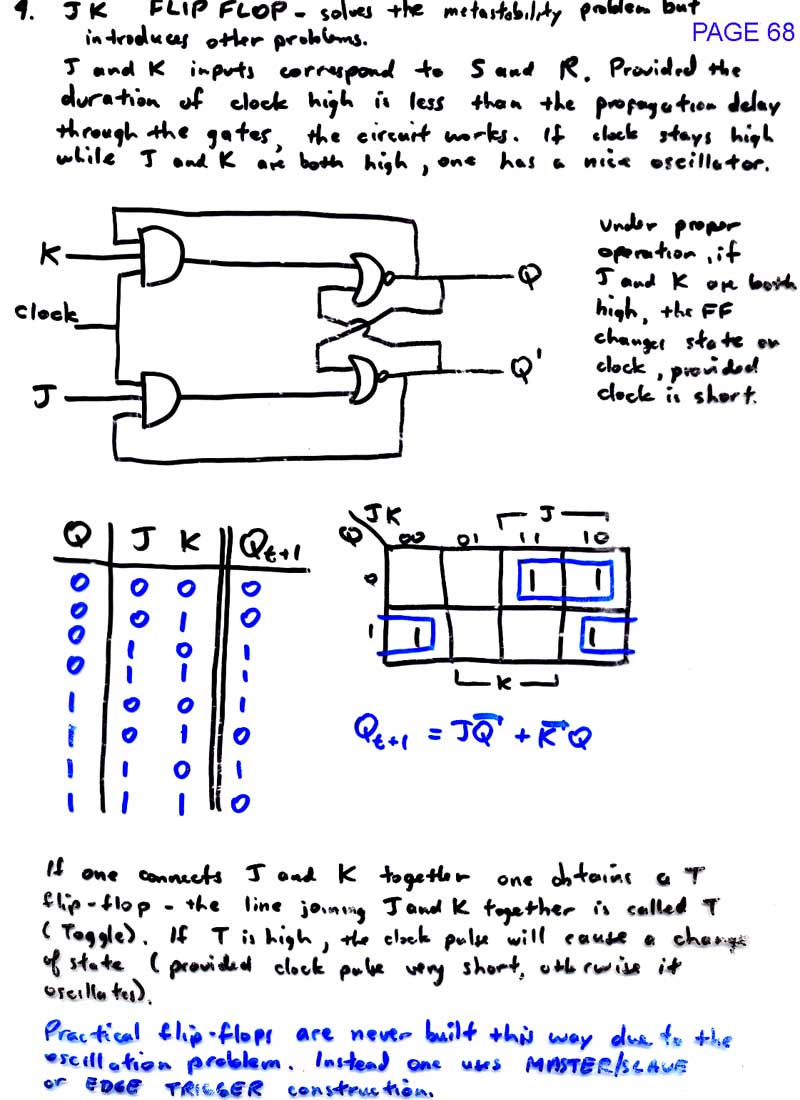 9. JK FLIP FLOP - solves the metastability problem but
PAGE 68
introduces other problems.
J and K inputs correspond to S and R. Provided the
duration of clock high is less than the propagation delay
through the gates, the circuit works. If clock stays high
while J and K are both high, one has a nice oscillator.
K
clock
J
Q
Q'
Under proper
operation, if
J and K are both
high, the FF
changes state on
clock, provided
clock is short.
Q J K Qt+1
0 0 0 0
0 0 1 0
0 1 0 1
0 1 1 1
1 0 0 1
1 0 1 0
1 1 0 1
1 1 1 0
JK J
Q 00 01 11 10
0 1 1
1 1 1
K
Qt+1 = JQ̅ + K̅Q
If one connects J and K together one obtains a T
flip-flop - the line joining J and K together is called T
(Toggle). If T is high, the clock pulse will cause a change
of state (provided clock pulse very short, otherwise it
oscillates).
Practical flip-flops are never built this way due to the
oscillation problem. Instead one uses MASTER/SLAVE
or EDGE TRIGGER construction.